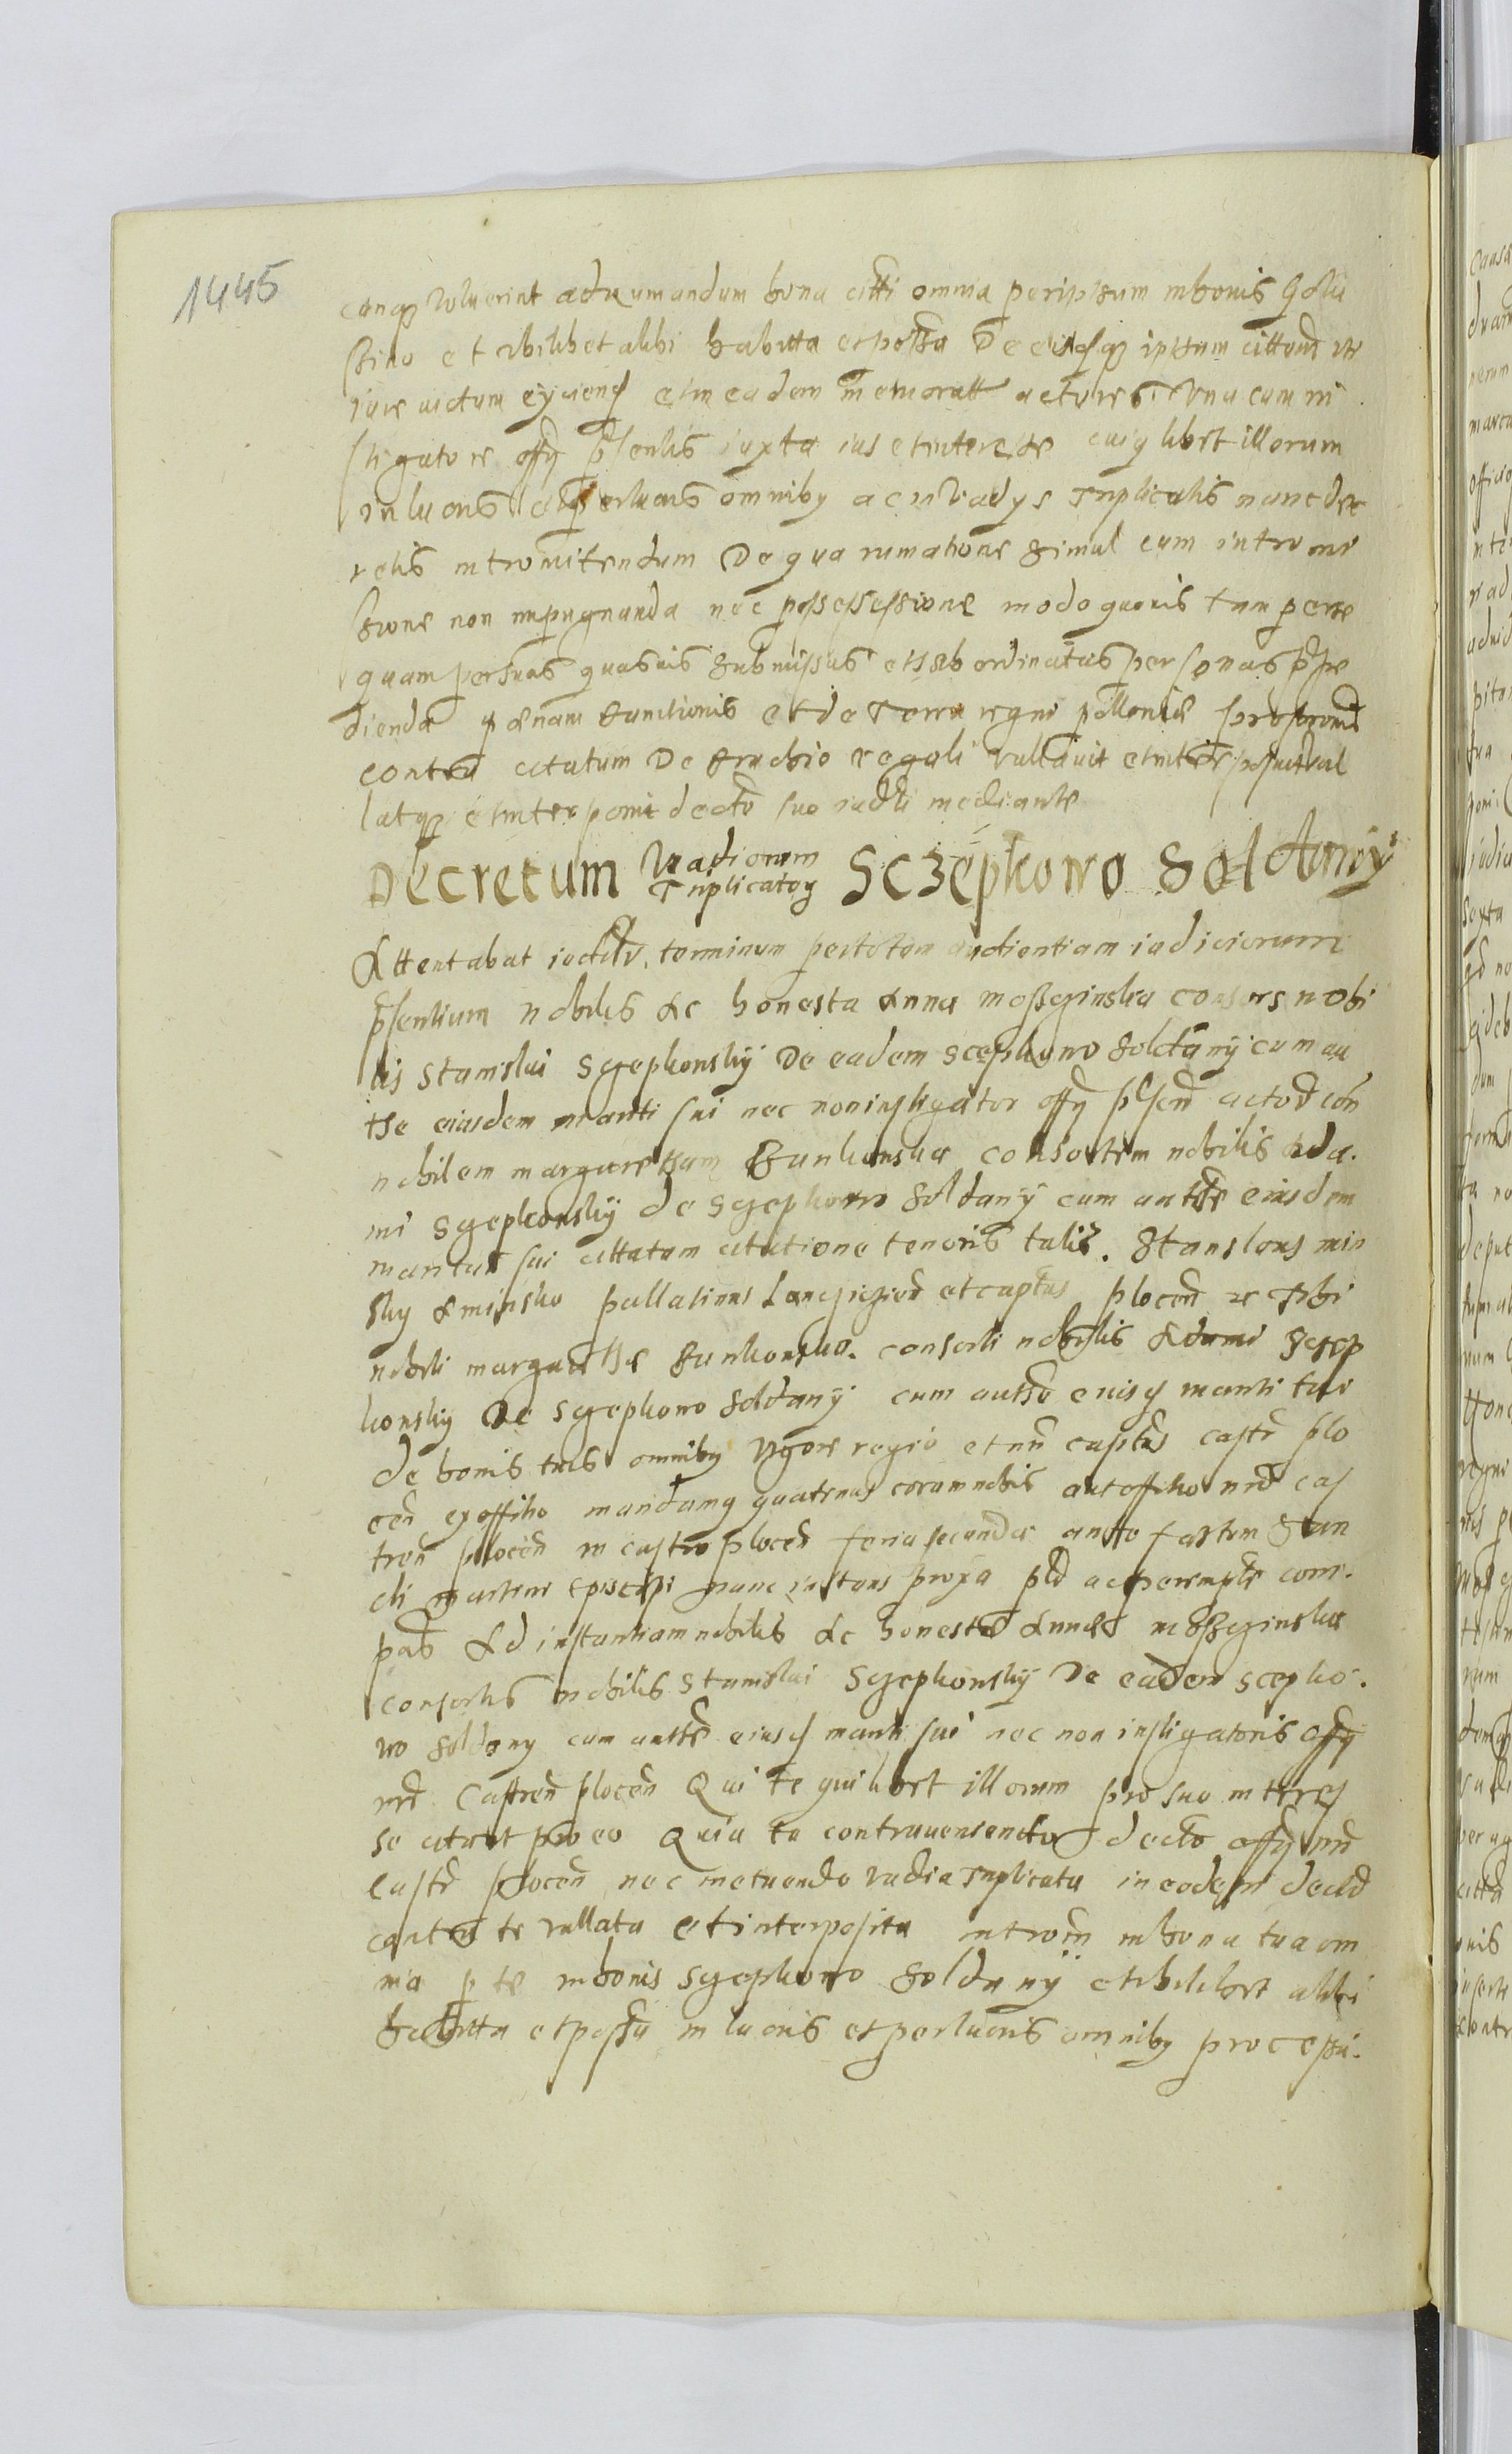 1445
cunq voluerint ad rumandum bona citti omnia per ipsum in bonis Golu
et ubilibet alibi habitta et possessa De eisdq ipsum cittatum ut
iure victum eyciend et in eadem memoratt actores Una cum in
stigatore offy pntis iuxta ius et interesse cuiqlibet illorum
in lucris et perlucris omniby ac in Vadys Triplicatis nunc dec
retis intromittendum De qua rumatione simul cum intromi
ssione non impugnanda nec possessessione modo quovis tam per se
quam personas quasvis submissas et subordinatas personas
dienda pænam bannitionis et de Terra regni poloniæ
contra citatum De brachio regali vallavit et interposuit val
latq et interponit decto suo iudli mediante
Decretum Vadiorum Triplicatoy Sczepkowo Soldany
Attentabat terminum per totam audientiam iudiciorum
pntium nobilis ac honesta Anna mosszginska consors nobi
lis Stanislai Sczepkonsky De eadem scepkowo soldany cum au
tte eiusdem mariti sui nec non instigator offy actores con
nobilem margarettam Bunkonska consortem nobilis Ada
mi sczepkonsky de sczepkowo soldany cum autte eiusdem
mariti sui cittatam citatione tenoris talis. Stanislaus min
sky de minsko pallatinus Lanciciens et captus plocen Tibi
nobili margarettæ Bunkonska consorti nobilis Adami Sczep
konsky De sczepkowo soldany cum autte eiusd mariti tui
de bonis tuis omniby vigore regio et captus castr plo
cen ex offitio mandamq quatenus coram nobis aut offitio nro cas
tren plocen in castro plocen feria secunda ante festum San
cti martini Episcopi nunc instans proxa ac peremptte com
peas Ad instantiam nobilis ac honestæ Annæ mosszginska
consortis nobilis Stanislai Sczepkonsky De eadem scepko
wo soldany cum autte eiusd mariti sui nec non instigatoris offy
nri Castren plocen Qui te quilibet illorum pro suo interes
se citat pro eo Quia tu contraveniendo decto offy nri
castr plocen nec metuendo vadia Triplicata in eodem decto
contra te vallata et interposita introm in bona tua om
nia per te in bonis sczepkowo soldany et ubilibet alibi
habitta et possa in lucris et perlucris omniby processu